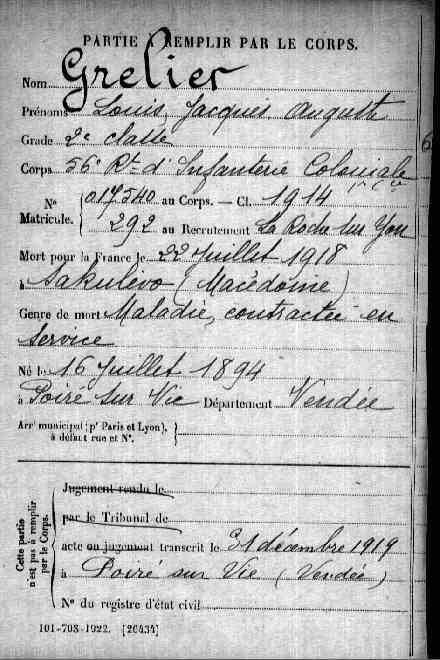 PARTIE À REMPLIR PAR LE CORPS.
Nom Grelier
Prénoms Louis Jacques Auguste
Grade 2e classe
Corps 56e Rt d'Infanterie Coloniale
N° Matricule. { 017540 au Corps. — Cl. 1914
292 au Recrutement La Roche sur Yon
Mort pour la France le 22 Juillet 1918
à Sakulévo (Macédoine)
Genre de mort Maladie, contractée en
service
Né le 16 Juillet 1894
à Poiré sur Vie Département Vendée
Arrt municipal (pr Paris et Lyon), à défaut rue et N°. }
Cette partie n'est pas à remplir par le Corps.
Jugement rendu le
par le Tribunal de
acte ou jugement transcrit le 31 décembre 1919
à Poiré sur Vie (Vendée)
N° du registre d'état civil
101-708-1922. [26434]